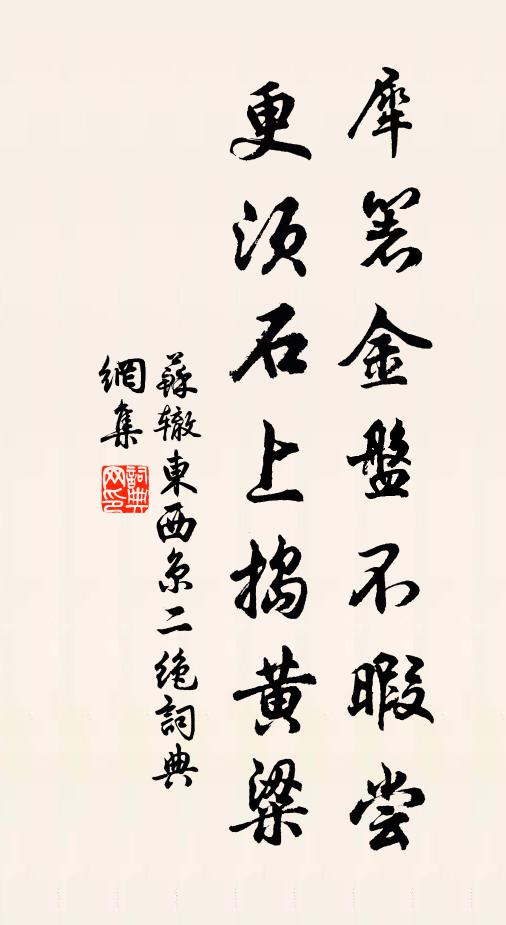 犀箸金盤不暇嘗
更須石上搗黃粱
蘇轍東西京二絶詞典
網集
詞典網印